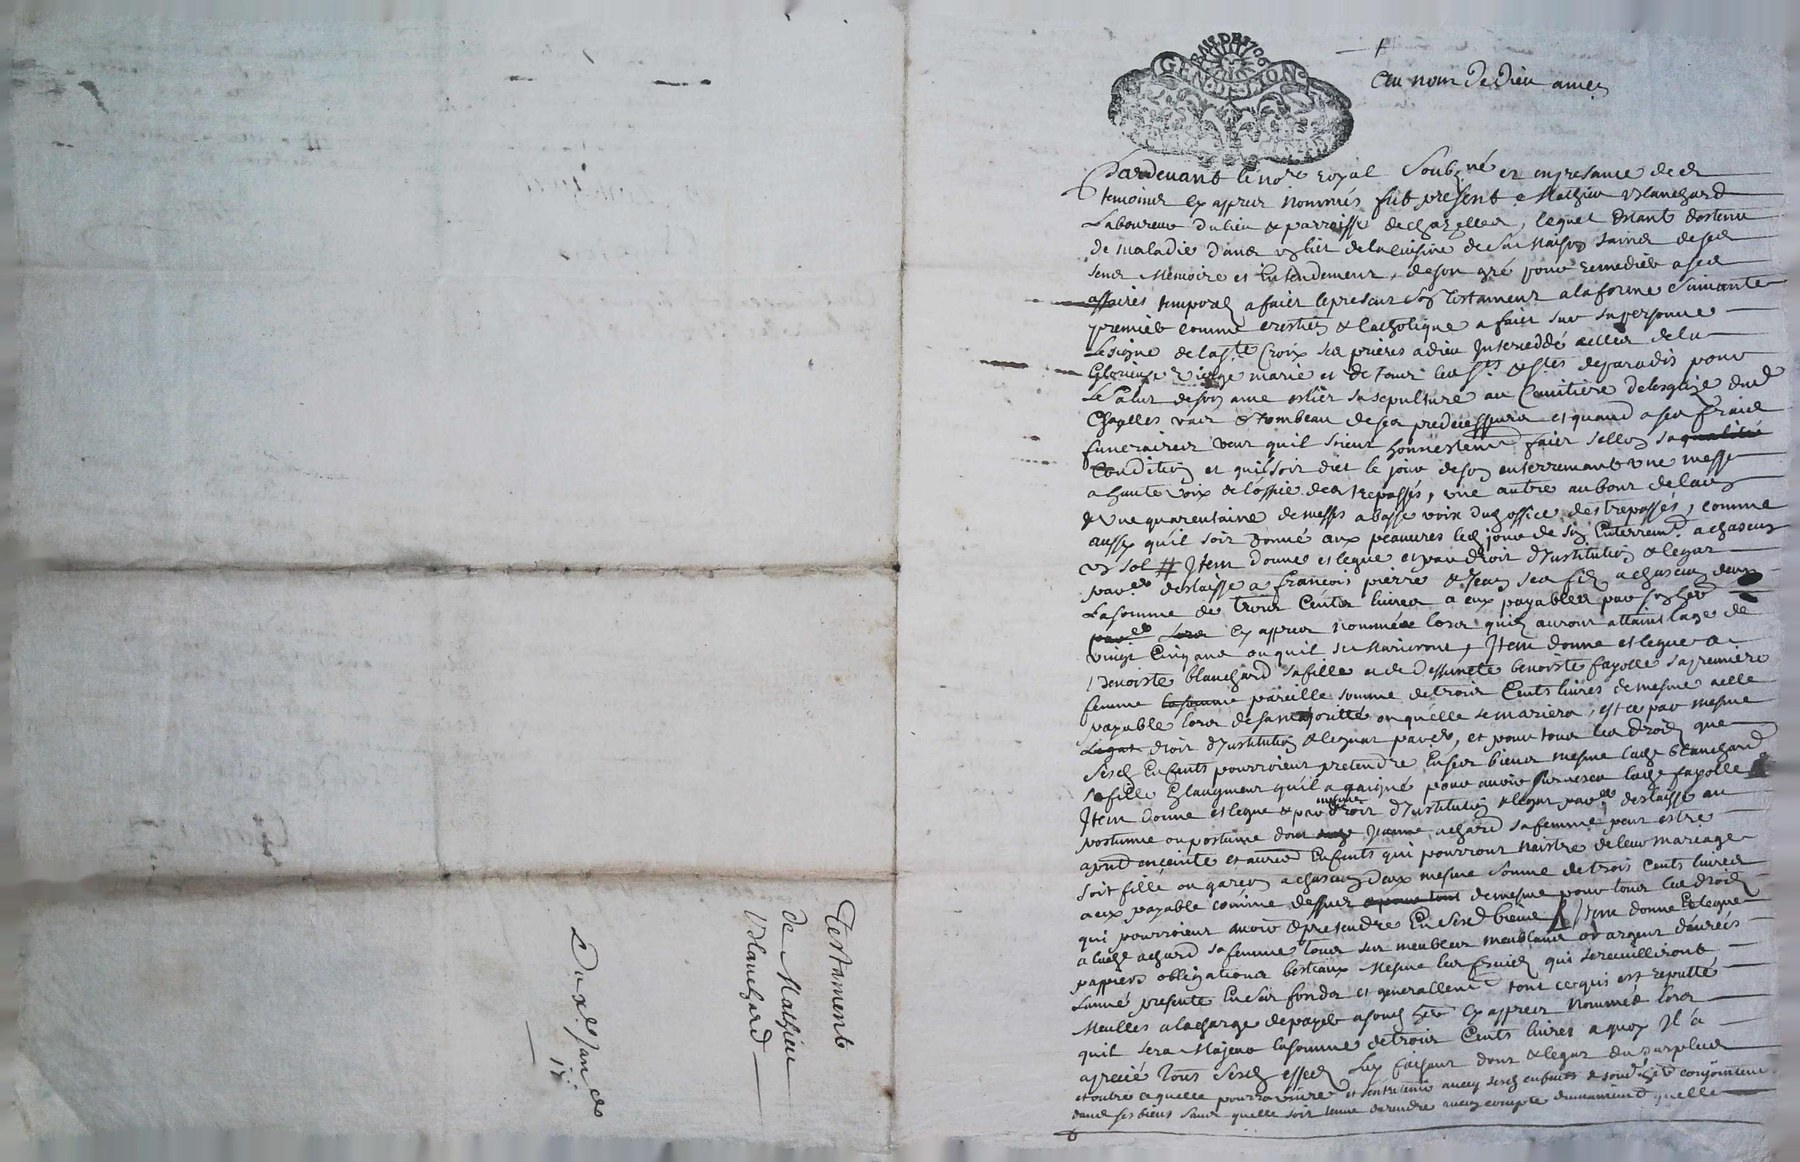 Testament
de Mathieu
Blanchard
Du x.e Jan
GEN
Au nom de dieu amen
Pardevant le no.re royal Soubz.né et en presance de
temoins cy appres nommés fut present Mathieu Blanchard
Laboureur du lieu & parroisse de chazelles, lequel estant destenu
de maladie dans un lict de la cuisine de sa maison saind de ses
sens Memoire et Entendement, de son gré pour remedier a ses
affaires temporel a faict le presant son testament a la forme Suivante
premier comme crestien & Catholique a faict sur sa personne
Le signe de la s.te Croix ses prieres a dieu Interceddé celles de la
Glorieuse vierge marie et de tous les s.ts & s.tes de paradis pour
Le salut de son ame eslict sa sepulture au Cemitière de lesglize dud
Chazelles & tombeau de ses predecesseurs et quand a ses fraicts
funeraires veut quil soient honnestem.t faict sellon sa qualité
Condition et quil soit dict le jour de son enterremant une messe
a haute voix de l'office des trepassés, une autre au bout de lan
& une quarentaine de messes a basse voix dud office des trepassés, comme
aussy quil soit donné aux peauvres led jour de son Enterrem.t a chascun
un sol # Item donne et legue et par droit d'Institution & legat
delaisse a francois pierre & Jean ses fils a chascun deux
La somme de trois Cents livres a eux payables par son her
cy appres nommée lors quil auront attains lage de
vingt Cinq ans ou quil se mariront, Item donne et legue a
Benoiste blanchard sa fille & de deffuncte benoiste fayolle sa premiere
femme la somme pareille somme de trois Cents livres de mesme a elle
payable lors de sa majorité ou quelle se mariera, et ce par mesme
Legat droit d'Institution & legat, et pour tous les droits que
Sesd Enfants pourroient pretendre En ses biens mesme lad blanchard
sa fille En laugment quil a gaigné pour avoir survescu lad fayolle
Item donne et legue & par mesme droit d'Institution & legat delaisse au
postume ou postume dont Jeanne achard sa femme peut estre
a pnt enceinte et autres Enfants qui pourront naistre de leur mariage
soit fille ou garcon a chascun deux mesme somme de trois Cents livres
a eux payable comme dessus de mesme pour tous les droits
qui pourroient avoir & pretendre En sesd biens Item donne & legue
a lad achard sa femme tous ses meubles meublans or argent denrées
pappiers obligations bestiaux Mesme les fruicts qui se reuilliront
Lanné presente En ses fonds et generallem.t tout ce qui est reputté
Meubles a la charge de payer a son her cy appres nommé lors
quil sera Majeur la somme de trois Cents livres a quoy Il a
aprecié tous sesd effects Luy faisant dont & legat du surplus
et outre ce quelle pourra vivre et s'entretenir avecq sesd enfants & son her conjointem.t
dans ses biens sans quelle soit tenue de rendre aucun compte quelle